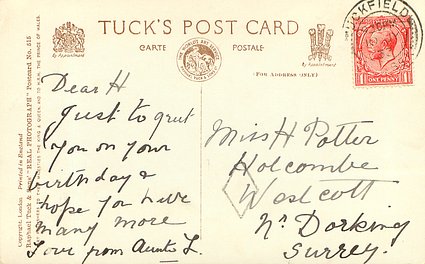 TUCK'S POST CARD
CARTE POSTALE
By Appointment
By Appointment
(FOR ADDRESS ONLY)
UCKFIELD
ONE PENNY
Dear H
Just to greet
you on your
birthday &
hope you have
many more
Love from Aunts L.
Miss H Potter
Holcombe
Westcott
Nr Dorking
Surrey.
Raphael Tuck & Sons' "REAL PHOTOGRAPH" Postcard No. 515
Copyright, London Printed in England